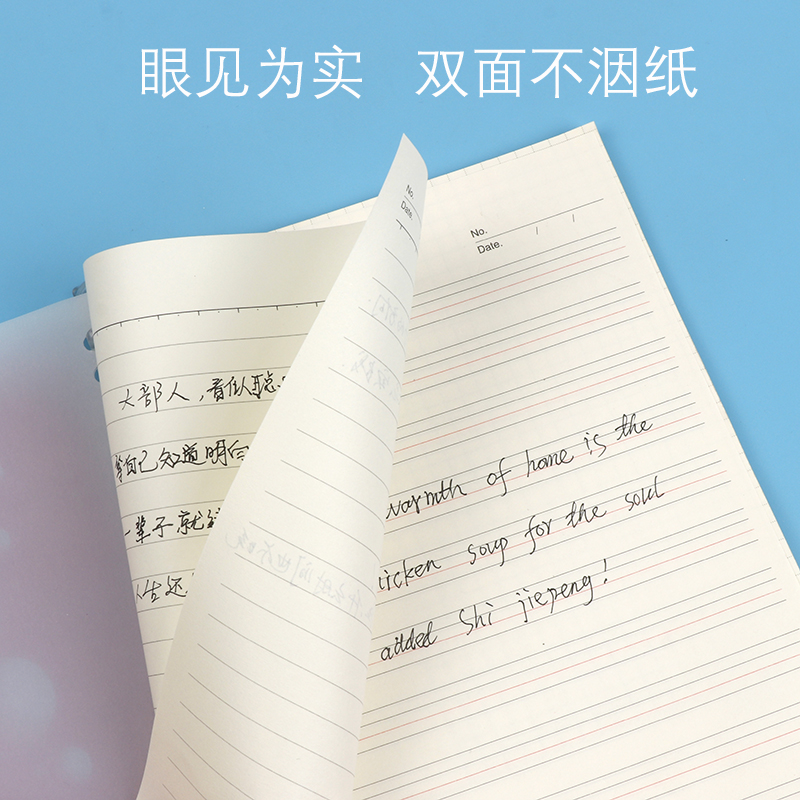 眼见为实 双面不洇纸
No.
Date.
No.
Date. / /
大部人，看似聪
等自己知道明白
一辈子就
还
warmth of home is the
icken soup for the soul
added Shi jiepeng!